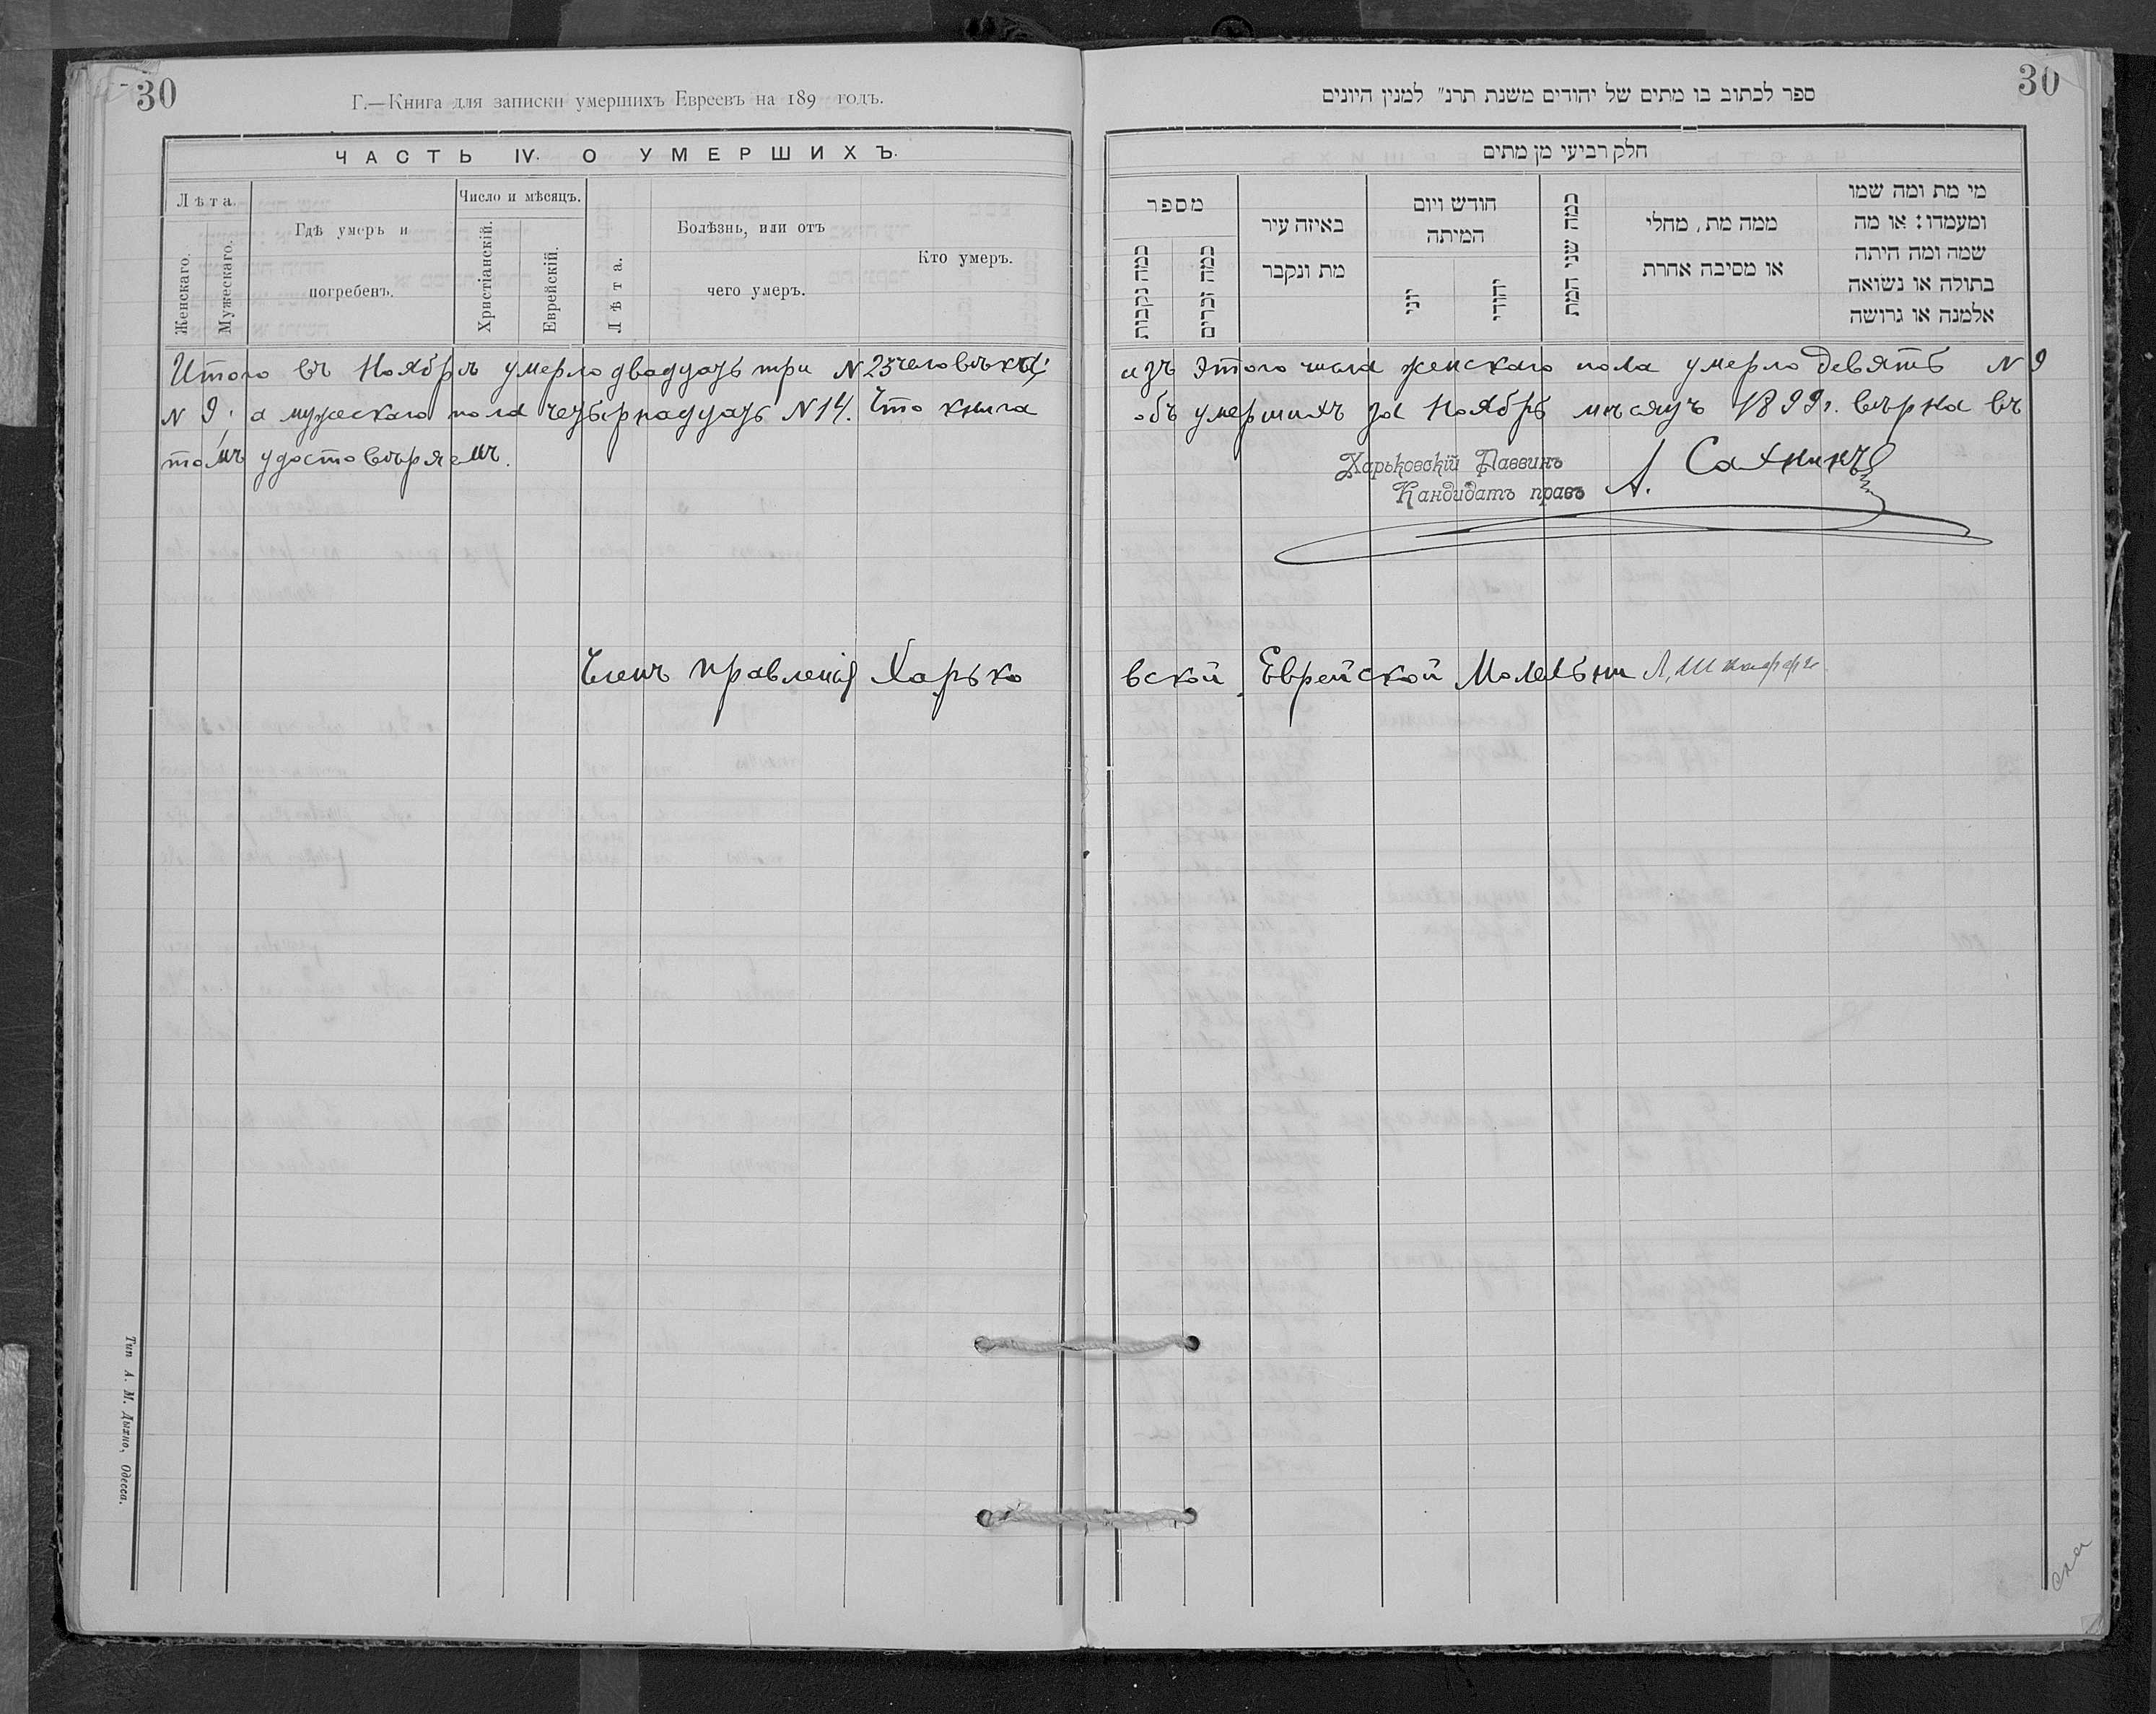 30
Г.—Книга для записки умершихъ Евреевъ на 189 годъ.
ЧАСТЬ IV. О УМЕРШИХЪ.
Лѣта.
Женскаго.
Мужескаго.
Гдѣ умеръ и
погребенъ.
Число и мѣсяцъ.
Христіанскій.
Еврейскій.
Лѣта.
Болѣзнь, или отъ
чего умеръ.
Кто умеръ.
30
ספר לכתוב בו מתים של יהודים משנת תרנ״ למנין היונים
חלק רביעי מן מתים
מספר
כמה נקבות
כמה זכרים
באיזה עיר
מת ונקבר
חודש ויום
המיתה
יוני
יהודי
כמה שני המת
ממה מת, מחלי
או מסיבה אחרת
מי מת ומה שמו
ומעמדו: או מה
שמה ומה היתה
בתולה או נשואה
אלמנה או גרושה
Итого въ Ноябрѣ умерло двадцать три N 23 человѣка; изъ этого числа женскаго пола умерло девять N 9
N 9; а мужескаго пола четырнадцать N 14. Что книга объ умершихъ за Ноябрь мѣсяцъ 1899г. вѣрна въ
томъ удостовѣряемъ.
Харьковскій Раввинъ
Кандидатъ правъ А. Сахнинъ
Членъ правленія Харьковской Еврейской Молельни Л.
Тип А. М. Дыхно, Одесса.